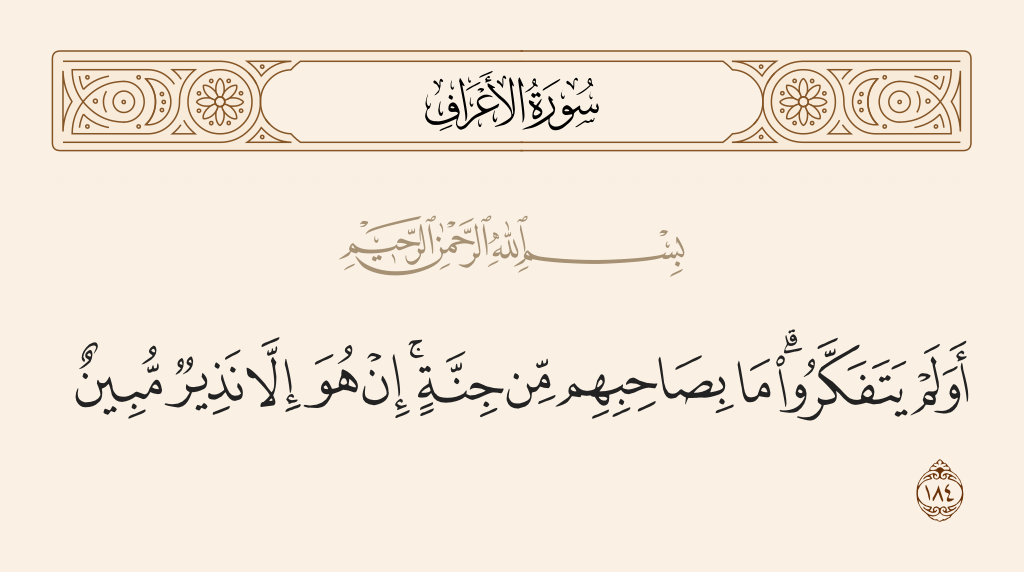 سُورَةُ الأَعْرَافِ
بِسْمِ ٱللَّهِ ٱلرَّحْمَٰنِ ٱلرَّحِيمِ
أَوَلَمْ يَتَفَكَّرُوا۟ ۗ مَا بِصَاحِبِهِم مِّن جِنَّةٍ ۚ إِنْ هُوَ إِلَّا نَذِيرٌ مُّبِينٌ
١٨٤